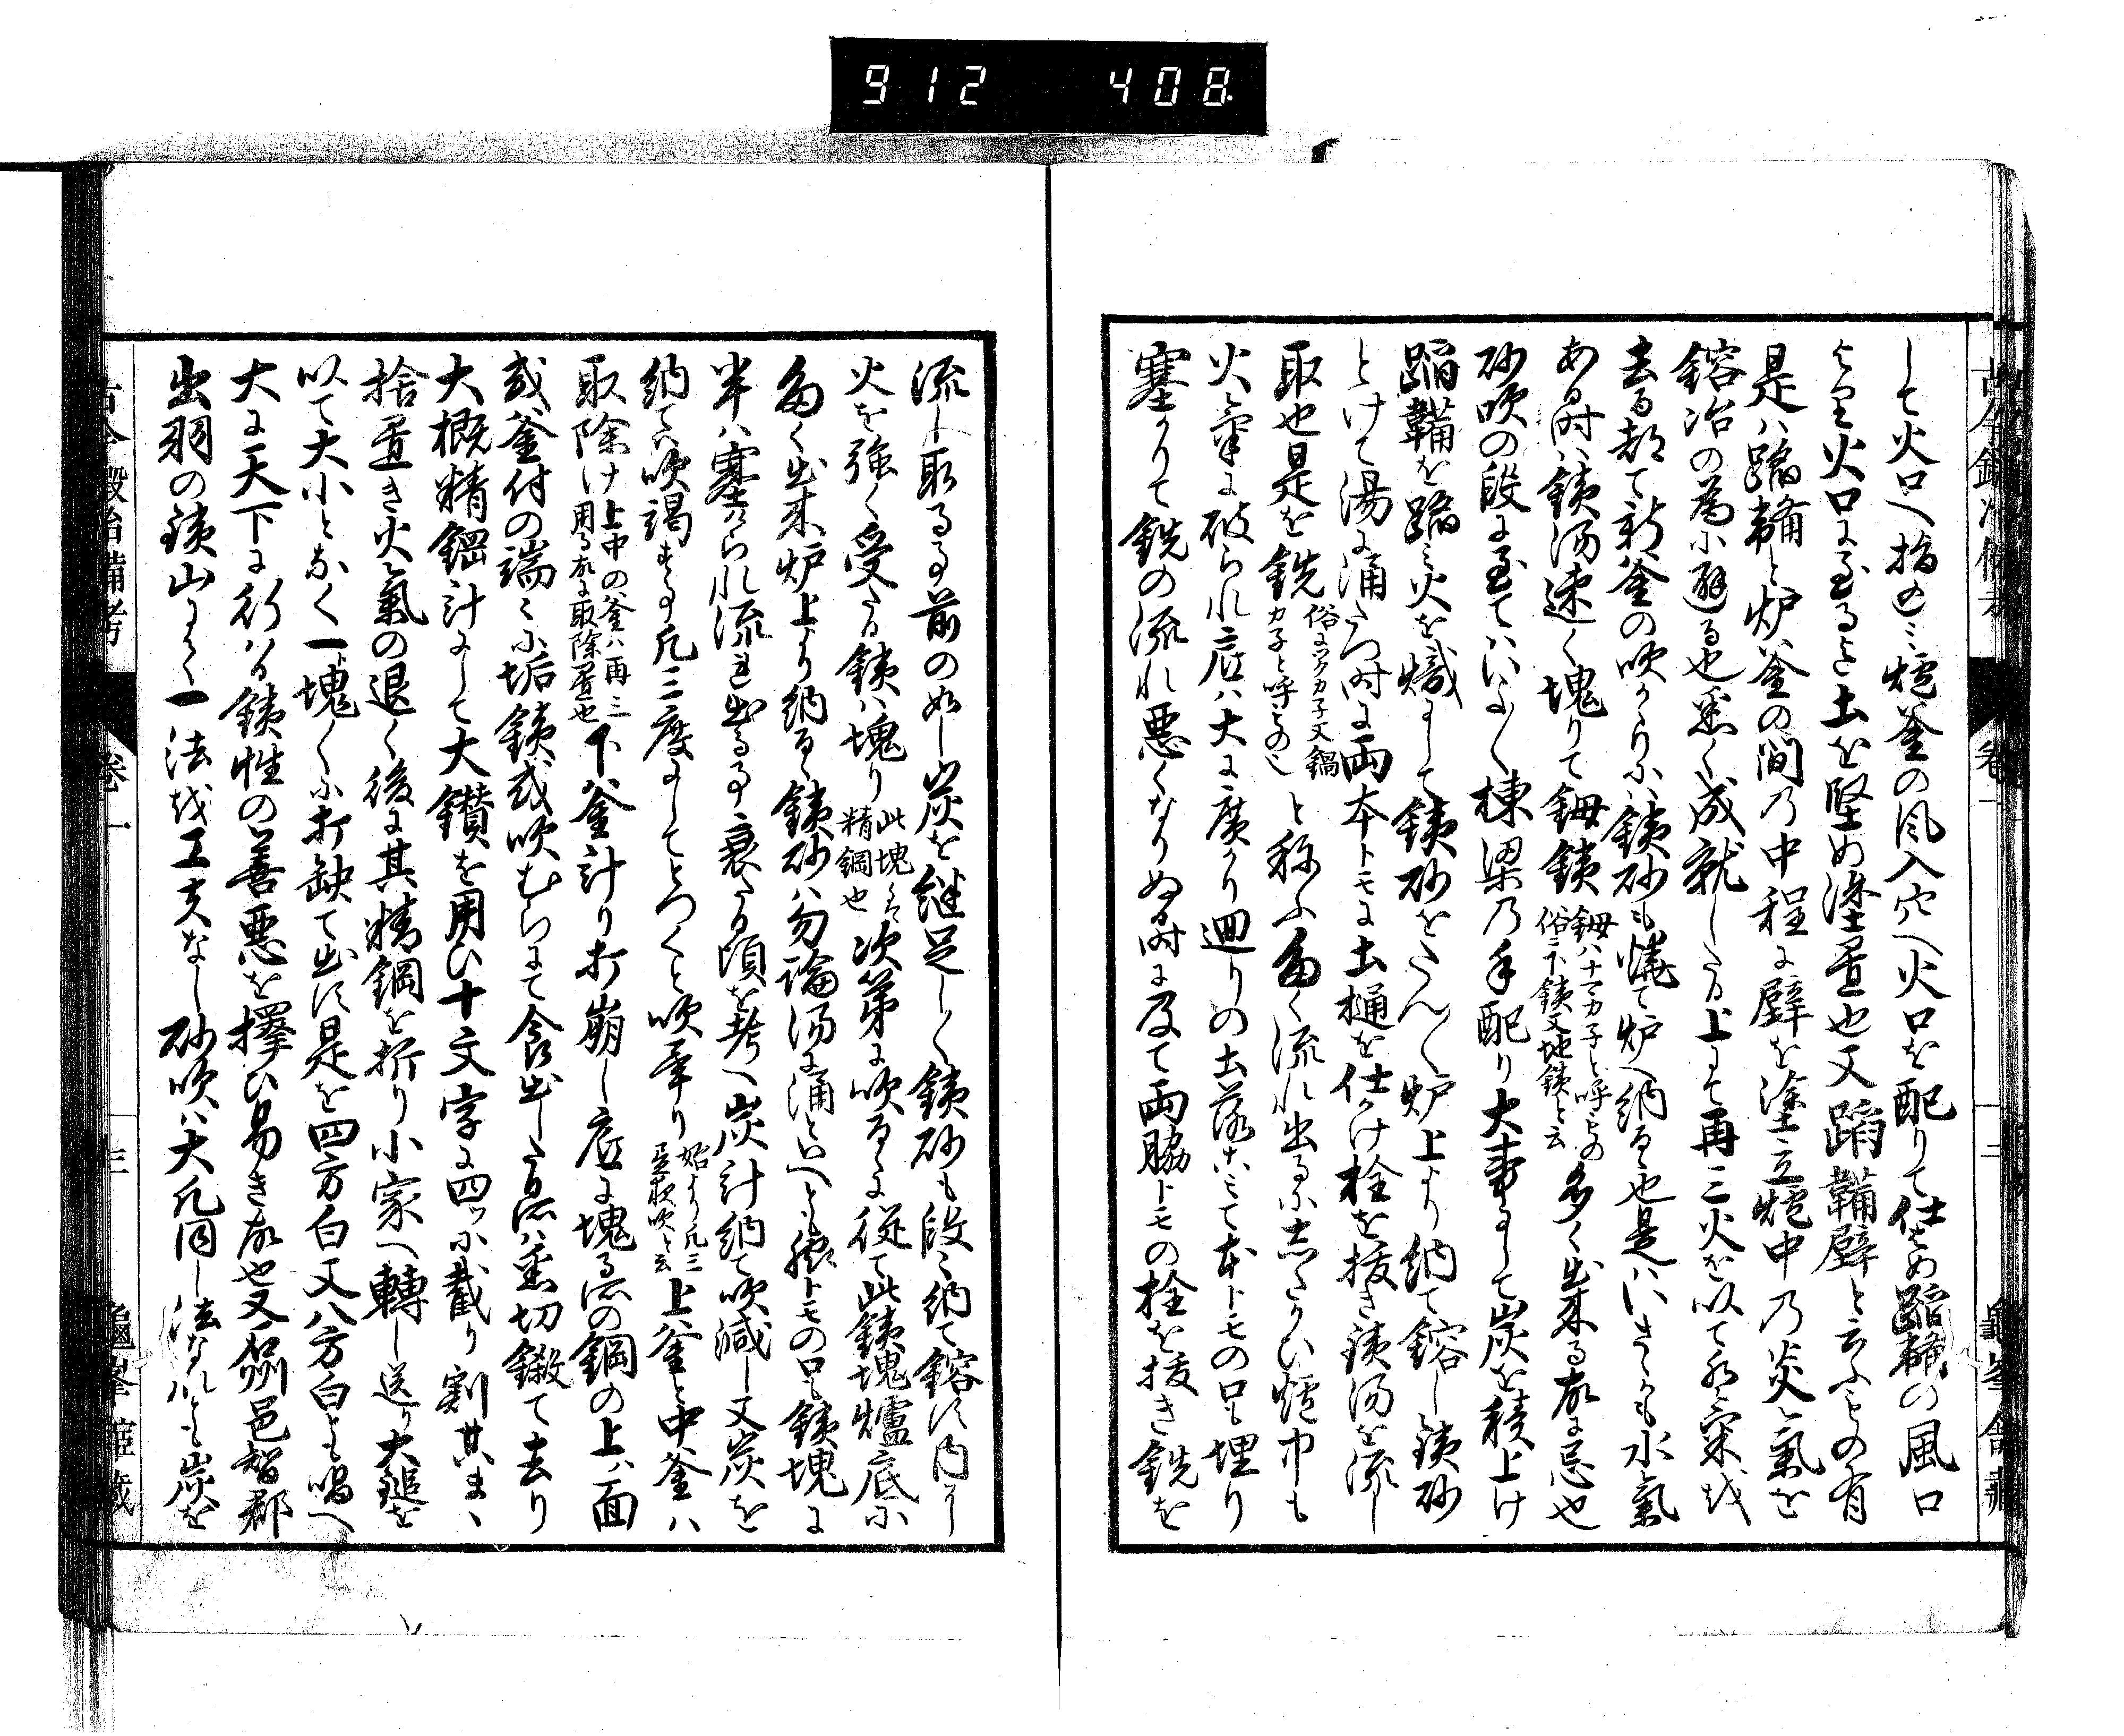 912 408
して火口へ指込ミ爐釜の風入穴へ火口を配りて仕込め蹈鞴の風口
より火口に至るまて土を堅め塗置也又蹈鞴壁と云ふもの有
是ハ蹈鞴と炉釜の間乃中程に壁を塗立爐中乃炎氣を
鎔冶の為に避る也悉く成就したる上にて再三火を以て水氣を
去る都て新釜の吹かゝりにハ鉄砂も焼て炉へ納る也是ハいさゝも水氣
ある時ハ鉄湯速く塊りて鉧鉄
鉧ハナマカ子と呼もの
俗ニ下鉄又地鉄と云
多く出来る故に忌也
砂吹の段に至てハいよ〳〵棟梁乃手配り大事にして炭を積上け
蹈鞴を蹈ミ火を熾にして鉄砂をたん〳〵炉上より納て鎔し鉄砂
とけて湯に涌たつ時に両本トモに土樋を仕かけ栓を抜き鉄湯を流し
取也是を銑
俗ニツクカ子又鍋
カ子と呼もの也
と称ふ多く流れ出るに志たかい爐中も
火氣に破られ底ハ大に廣かり廻りの土落こみて本トモの口も埋り
塞かりて銑の流れ悪くなりぬる時に及て両脇トモの栓を抜き銑を
流し取る事前の如し炭を継足し〳〵鉄砂も段々納て鎔す内より
火を強く受たる鉄ハ塊り
此塊くハ
精鋼也
次第に吹るに従て此鉄塊爐底に
多く出来炉上より納る鉄砂ハ勿論湯に涌といへとも脇トモの口も鉄塊に
半ハ塞けられ流れ出る事衰たる頃を考へ炭計納て吹減し又炭を
納てハ吹竭する事凡三度にしてとつくと吹畢り
上釜と中釜ハ
取除け
上中の釜ハ再三
用る故に取除置也
下釜計り打崩し底に塊る所の鋼の上ハ面
或釜付の端々に垢鉄或吹むらにて食出したる所ハ悉切鏾て去り
大概精鋼計にして大鑚を用ひ十文字に四ツに截り割其まゝ
捨置き火氣の退く後に其精鋼を折り小家へ轉し送り大鎚を
以て大小となく一ト塊〳〵に打缺て出す是を四方白又八方白とも唱へ
大に天下に行ハる鉄性の善悪を擇ひ易き故也又石州邑智郡
出羽の鉄山にて一法を工夫なし砂吹ハ大凡同し法なれとも炭を
古今鍛冶備考 卷一